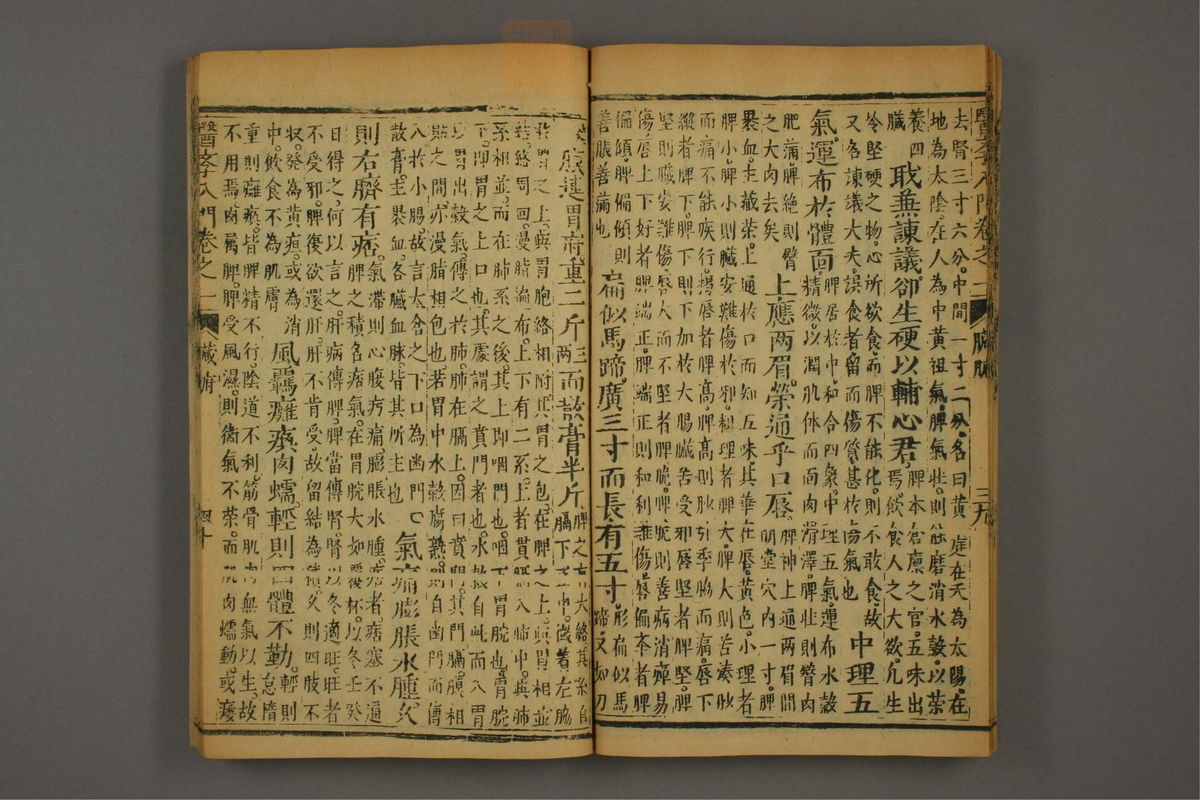 醫李入門卷之二 臟腑 三九
去腎三寸六分。中間一寸二分。名曰黃庭。在天為太陽。在
地為太陰。在人為中黃祖氣。脾氣壯。則能磨消水穀。以榮
養四臟 戢兼諫議卻生硬以輔心君 脾本倉廪之官。五味出焉。飲食人之大欲。凡生
冷堅硬之物。心所欲食。而脾不能化。則不敢食。故
又名諫議大夫。誤食者留而傷質。甚於傷氣也 中理五
氣。運布於體面 脾居於中。和合四象。中理五氣。運布水穀精微。以潤肌体。而面肉滑澤。脾壯則臀肉
肥滿。脾絕則臂之大肉去矣 上應两眉榮通乎口唇 脾神上通两眉間明堂穴內一寸。脾
裹血。主藏榮。上通於口而知五味。其華在唇。黃色。小理者
脾小。脾小則臟安難傷於邪。粗理者脾大。脾大則苦湊䏚
而痛。不能疾行。揭唇者脾高。脾高則䏚引季脇而痛。唇下
縱者脾下。脾下則下加於大腸。臟苦受邪。唇堅者脾堅。脾
堅則臟安難傷。唇大而不堅者脾脆。脾脆則善病消癉易
傷。唇上下好者脾端正。脾端正則和利難傷。唇偏牽者脾
偏傾。脾偏傾則善脹善滿也 扁似馬蹄。廣三寸而長有五寸 形扁似馬蹄。又如刀
膜連胃府重二斤三两而散膏半斤 脾之有大絡其系自膈下正中。微着左脇
於胃之上。與胃胞絡相附。其胃之包。在脾之上。與胃相並
結絡周回。漫脂遍布。上下有二系。上者貫膈入肺中。與肺
系相並。而在肺系之後。其上即咽門也。咽下胃脘也。胃脘
下。即胃之上口也。其處謂之賁門者也。水穀自此而入胃
以胃出穀氣。傳之於肺。肺在膈上。因曰賁門。其門膈膜相
貼之間。亦漫脂相包也。若胃中水穀腐熟。則自幽門而傳
入於小腸。故言太倉之下口為幽門。
散膏。主裹血。各臟血脉。皆其所主也 〇氣痛膨脹水腫久
則右臍有痞 氣滯則心腹疞痛。膨脹水腫。痞者。痞塞不通
脾之積名痞氣。在胃脘大如覆杯。以冬壬癸
日得之。何以言之。肝病傳脾。脾當傳腎。腎以冬適旺。旺者
不受邪。脾復欲還肝。肝不肯受。故留結為積。久則四肢不
収。發為黃疸。或為消中。飲食不為肌膚 風羈癱瘓肉蠕。輕則四體不勤。輕則怠惰
重則癱瘓。皆脾精不行。陰道不利。筋骨肌肉無氣以生。故
不用焉。肉属脾。脾受風濕。則衛氣不榮。而肌肉蠕動。或痿
醫李入門卷之一 臟腑 四十